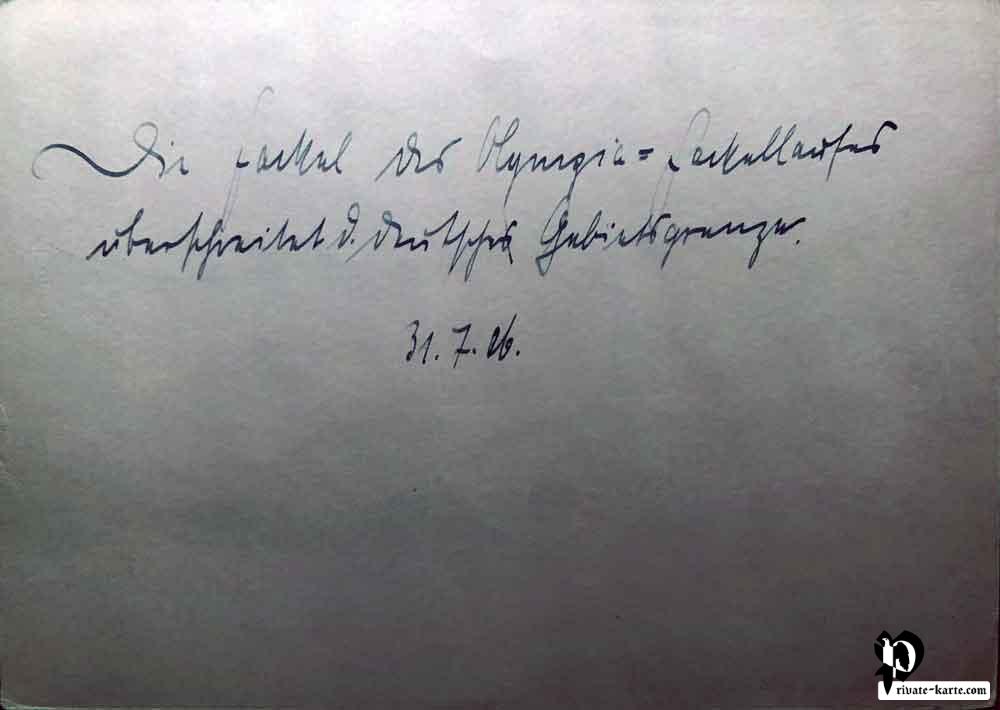 Die Fackel des Olympia=Fackellaufes
überschreitet d. deutsche Gebietsgrenze.
31. 7. 36.
Private-karte.com